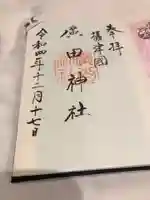 奉拝
攝津國
田神社
令和四年十二月十七日